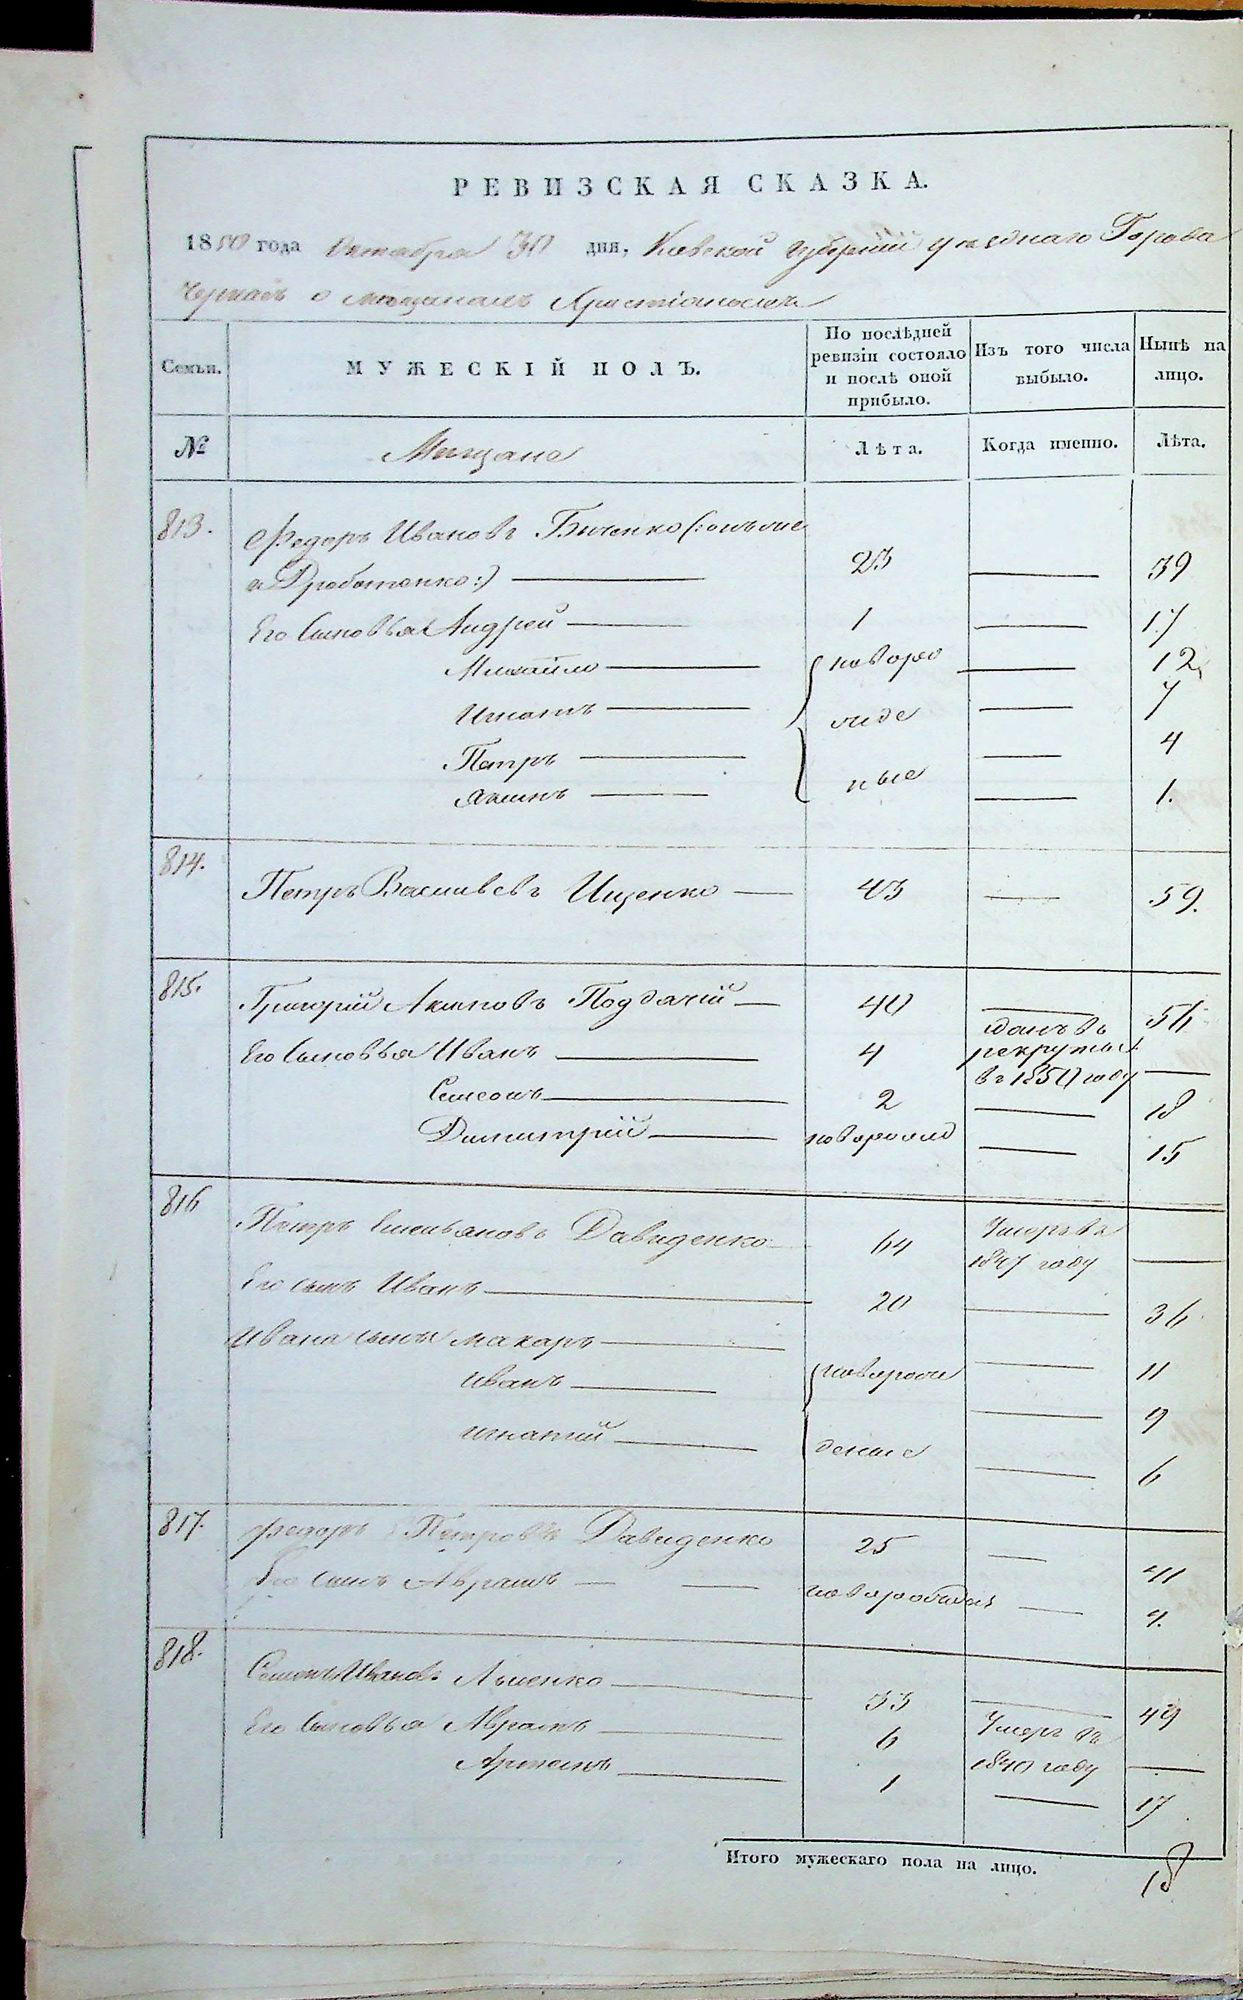 РЕВИЗСКАЯ СКАЗКА.
1850 года Октября 30 дня, Киевской губернии уезднаго Города
Черкасъ о мещанахъ Христіанахъ
Семьи. МУЖЕСКІЙ ПОЛЪ. По послѣдней ревизіи состояло и послѣ оной прибыло. Изъ того числа выбыло. Нынѣ на лицо.
№ Мещане Лѣта. Когда именно. Лѣта.
813. Федоръ Ивановъ Биченко (: онъ же
и Дроботенко :) 23 39
Его Сыновья Андрей 1 17
Михайло новоро 12
Игнатъ жде 7
Петръ ные 4
Якимъ 1.
814. Петръ Васильевъ Ищенко 43 59.
815. Григорій Акимовъ Поддачій 40 56
Его Сыновья Иванъ 4 отданъ въ рекруты въ 1850 году
Семенъ 2 18
Димитрій новорожд 15
816 Петръ Емельяновъ Давиденко 64 Умеръ въ 1847 году
Его сынъ Иванъ 20 36
Ивана сыны Макаръ новорож 11
Иванъ 9
Игнатій денные 6
817. Федоръ Петровъ Давиденко 25 41
Его сынъ Аврамъ новорожден 4.
818. Семенъ Ивановъ Ляшенко 33 49
Его Сыновья Аврамъ 6 Умеръ въ 1840 году
Артемъ 1 17
Итого мужескаго пола на лицо. 18